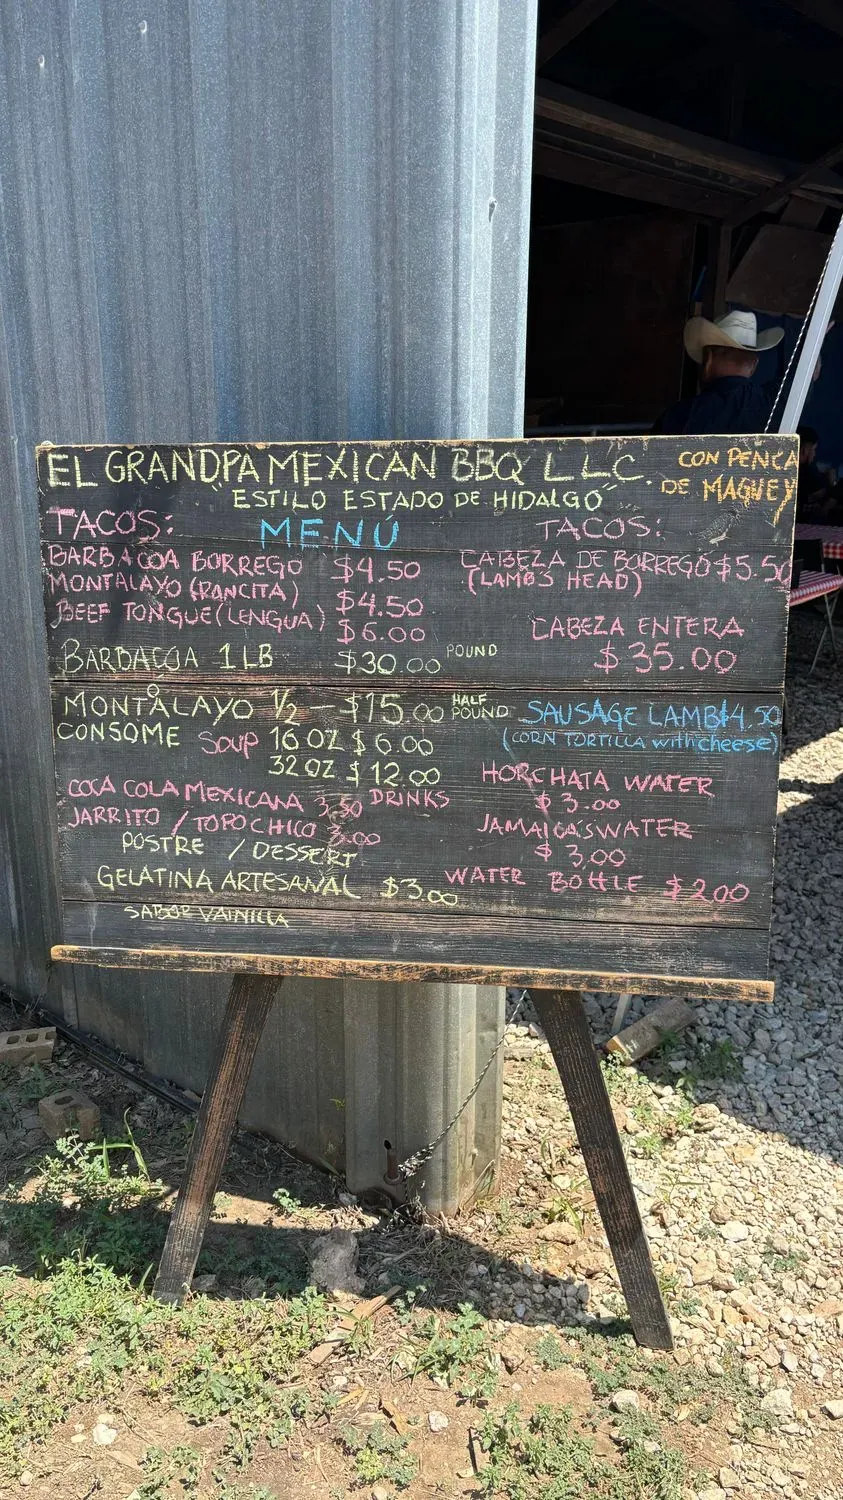 EL GRANDPA MEXICAN BBQ L.L.C.
"ESTILO ESTADO DE HIDALGO"
CON PENCA
DE MAGUEY
MENÚ
TACOS:
BARBACOA BORREGO $4.50
MONTALAYO (PANCITA) $4.50
BEEF TONGUE (LENGUA) $6.00
BARBACOA 1 LB $30.00 POUND
TACOS:
CABEZA DE BORREGO $5.50
(LAMB'S HEAD)
CABEZA ENTERA
$35.00
MONTALAYO 1/2 - $15.00 HALF POUND
CONSOME SOUP 16 OZ $6.00
32 OZ $12.00
SAUSAGE LAMB $4.50
(CORN TORTILLA with cheese)
DRINKS
COCA COLA MEXICANA 3.50
JARRITO / TOPOCHICO 3.00
HORCHATA WATER
$3.00
JAMAICA'S WATER
$3.00
WATER BOttLE $2.00
POSTRE / DESSERT
GELATINA ARTESANAL $3.00
SABOR VAINILLA